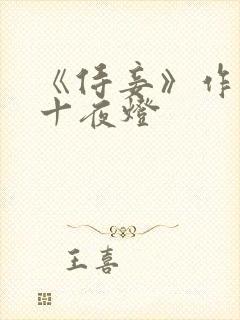 《侍妾》作
十夜燈
王喜